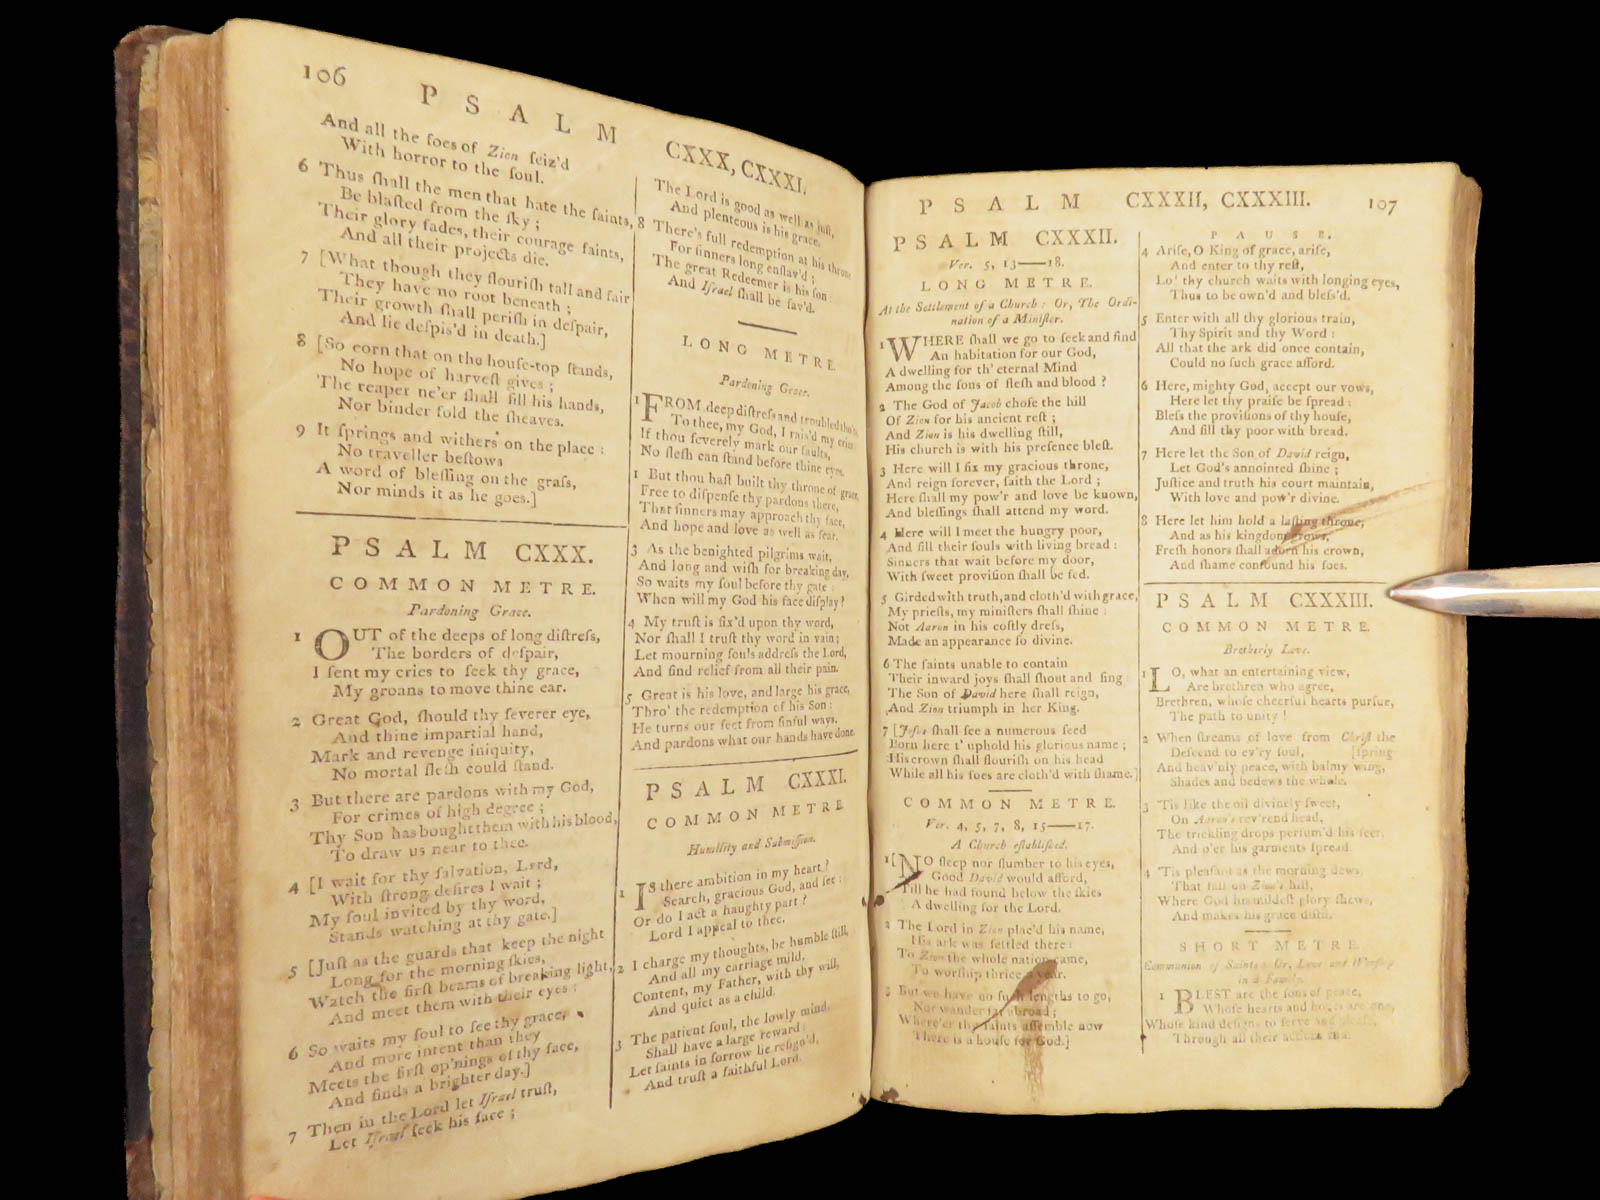 106
PSALM CXXX, CXXXI.
And all the foes of Zion ſeiz'd
With horror to the ſoul.
6 Thus ſhall the men that hate the ſaints,
Be blaſted from the ſky ;
Their glory fades, their courage faints,
And all their projects die.
7 [What though they flouriſh tall and fair
They have no root beneath ;
Their growth ſhall periſh in deſpair,
And lie deſpis'd in death.]
8 [So corn that on the houſe-top ſtands,
No hope of harveſt gives ;
The reaper ne'er ſhall fill his hands,
Nor binder fold the ſheaves.
9 It ſprings and withers on the place :
No traveller beſtows
A word of bleſſing on the graſs,
Nor minds it as he goes.]
PSALM CXXX.
COMMON METRE.
Pardoning Grace.
1 OUT of the deeps of long diſtreſs,
The borders of deſpair,
I ſent my cries to ſeek thy grace,
My groans to move thine ear.
2 Great God, ſhould thy ſeverer eye,
And thine impartial hand,
Mark and revenge iniquity,
No mortal fleſh could ſtand.
3 But there are pardons with my God,
For crimes of high degree ;
Thy Son has bought them with his blood,
To draw us near to thee.
4 [I wait for thy ſalvation, Lord,
With ſtrong deſires I wait ;
My ſoul invited by thy word,
Stands watching at thy gate.]
5 [Juſt as the guards that keep the night
Long for the morning ſkies,
Watch the firſt beams of breaking light,
And meet them with their eyes :
6 So waits my ſoul to ſee thy grace,
And more intent than they
Meets the firſt op'nings of thy face,
And finds a brighter day.]
7 Then in the Lord let Iſrael truſt,
Let Iſrael ſeek his face ;
The Lord is good as well as juſt,
And plenteous is his grace.
8 There's full redemption at his throne
For ſinners long enſlav'd ;
The great Redeemer is his ſon :
And Iſrael ſhall be ſav'd.
LONG METRE.
Pardoning Grace.
1 FROM deep diſtreſs and troubled
To thee, my God, I rais'd my cries
If thou ſeverely mark our faults,
No fleſh can ſtand before thine eyes.
1 But thou haſt built thy throne of grace,
Free to diſpenſe thy pardons there,
That ſinners may approach thy face,
And hope and love as well as fear.
3 As the benighted pilgrims wait,
And long and wiſh for breaking day,
So waits my ſoul before thy gate :
When will my God his face diſplay?
4 My truſt is fix'd upon thy word,
Nor ſhall I truſt thy word in vain ;
Let mourning ſouls addreſs the Lord,
And find relief from all their pain.
5 Great is his love, and large his grace,
Thro' the redemption of his Son :
He turns our feet from ſinful ways,
And pardons what our hands have done.
PSALM CXXXI.
COMMON METRE.
Humility and Submiſſion.
1 IS there ambition in my heart?
Search, gracious God, and ſee :
Or do I act a haughty part ?
Lord I appeal to thee.
2 I charge my thoughts, be humble ſtill,
And all my carriage mild,
Content, my Father, with thy will,
And quiet as a child.
3 The patient ſoul, the lowly mind
Shall have a large reward :
Let ſaints in ſorrow lie reſign'd,
And truſt a faithful Lord.
PSALM CXXXII, CXXXIII. 107
PSALM CXXXII.
Ver. 5, 13—18.
LONG METRE.
At the Settlement of a Church : Or, The Ordi-
nation of a Miniſter.
1 WHERE ſhall we go to ſeek and find
An habitation for our God,
A dwelling for th' eternal Mind
Among the ſons of fleſh and blood ?
2 The God of Jacob choſe the hill
Of Zion for his ancient reſt ;
And Zion is his dwelling ſtill,
His church is with his preſence bleſt.
3 Here will I fix my gracious throne,
And reign forever, ſaith the Lord ;
Here ſhall my pow'r and love be known,
And bleſſings ſhall attend my word.
4 Here will I meet the hungry poor,
And fill their ſouls with living bread :
Sinners that wait before my door,
With ſweet proviſion ſhall be fed.
5 Girded with truth, and cloth'd with grace,
My prieſts, my miniſters ſhall ſhine :
Not Aaron in his coſtly dreſs,
Made an appearance ſo divine.
6 The ſaints unable to contain
Their inward joys ſhall ſhout and ſing :
The Son of David here ſhall reign,
And Zion triumph in her King.
7 [Jeſus ſhall ſee a numerous ſeed
Born here t' uphold his glorious name ;
His crown ſhall flouriſh on his head
While all his foes are cloth'd with ſhame.]
COMMON METRE.
Ver. 4, 5, 7, 8, 15—17.
A Church eſtabliſhed.
1 [NO ſleep nor ſlumber to his eyes,
Good David would afford,
Till he had found below the ſkies
A dwelling for the Lord.
2 The Lord in Zion plac'd his name,
His ark was ſettled there :
To Zion the whole nation came,
To worſhip thrice a year.
3 But we have no ſuch lengths to go,
Nor wander far abroad ;
Where'er thy ſaints aſſemble now
There is a houſe for God.]
PAUSE.
4 Ariſe, O King of grace, ariſe,
And enter to thy reſt,
Lo! thy church waits with longing eyes,
Thus to be own'd and bleſs'd.
5 Enter with all thy glorious train,
Thy Spirit and thy Word :
All that the ark did once contain,
Could no ſuch grace afford.
6 Here, mighty God, accept our vows,
Here let thy praiſe be ſpread :
Bleſs the proviſions of thy houſe,
And fill thy poor with bread.
7 Here let the Son of David reign,
Let God's annointed ſhine ;
Juſtice and truth his court maintain,
With love and pow'r divine.
8 Here let him hold a laſting throne,
And as his kingdom grows,
Freſh honors ſhall adorn his crown,
And ſhame confound his foes.
PSALM CXXXIII.
COMMON METRE.
Brotherly Love.
1 LO, what an entertaining view,
Are brethren who agree,
Brethren, whoſe cheerful hearts purſue,
The path to unity !
2 When ſtreams of love from Chriſt the
Deſcend to ev'ry ſoul, [ſpring
And heav'nly peace, with balmy wing,
Shades and bedews the whole.
3 'Tis like the oil divinely ſweet,
On Aaron's rev'rend head,
The trickling drops perfum'd his feet,
And o'er his garments ſpread.
4 'Tis pleaſant as the morning dews,
That fall on Zion's hill,
Where God his mildeſt glory ſhews,
And makes his grace diſtil.
SHORT METRE.
Communion of Saints : Or, Love and Worſhip
in a Family.
1 BLEST are the ſons of peace,
Whoſe hearts and hopes are one,
Whoſe kind deſigns to ſerve and pleaſe,
Through all their actions run.